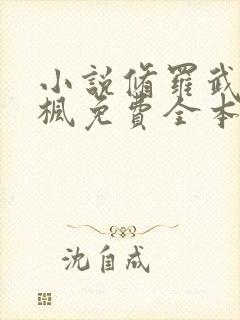 小説脩羅武
楓免費全本
沈自成